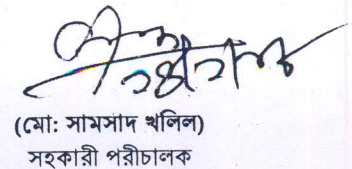 (মো: সামসাদ খলিল)
সহকারী পরীচালক